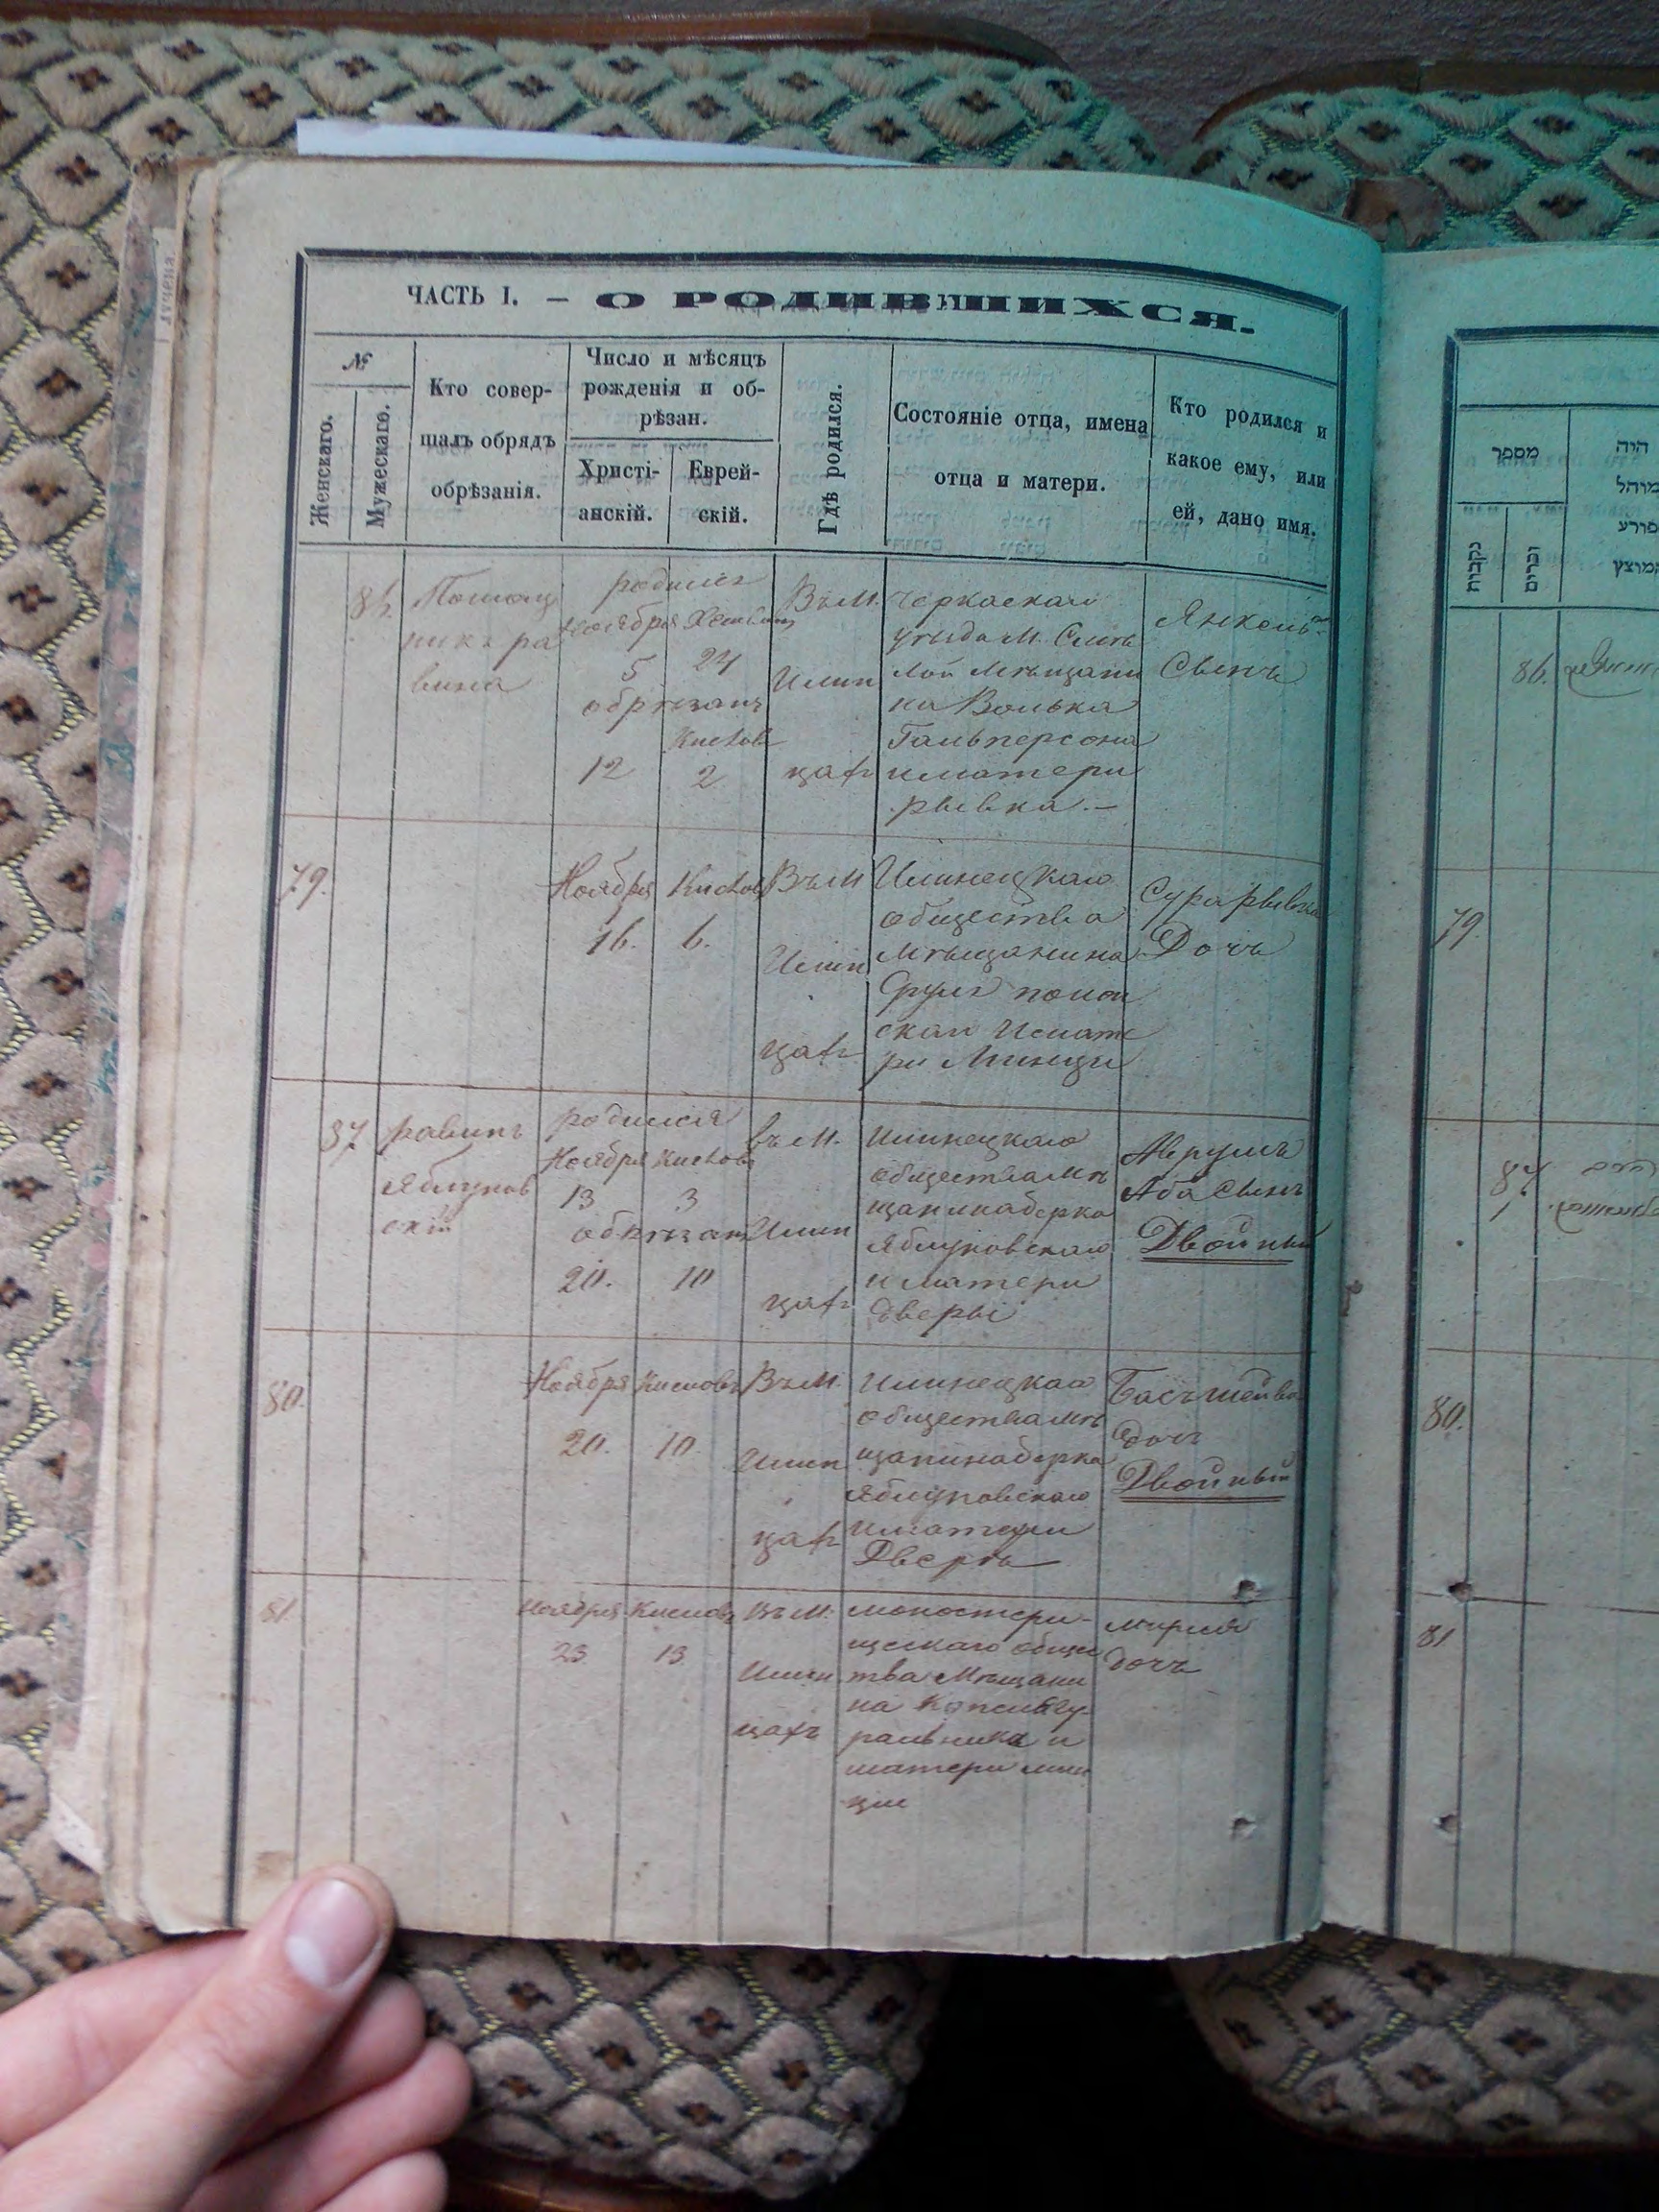 ЧАСТЬ I. — О РОДИВШИХСЯ.
№
Женскаго.
Мужескаго.
Кто совер-
шалъ обрядъ
обрѣзанія.
Число и мѣсяцъ
рожденія и об-
рѣзан.
Христі-
анскій.
Еврей-
скій.
Гдѣ родился.
Состояніе отца, имена
отца и матери.
Кто родился и
какое ему, или
ей, дано имя.
86.
Помощ
никъ ра
вина
родился
Ноября
5 24
обрѣзанъ
Кислов
12 2
Въ М.
Илин
цахъ
Черкаскаго
уѣзда М. Смѣ
лой Мѣщани
на Волька
Гальперсона
и матери
рывка. —
Янкель
Сынъ
79.
Ноября Кислов
16. 6.
Въ М
Илин
цахъ
Илинецкаго
общества
Мѣщанина
Сруля
ри Минци
Сура рывка
Дочь
87
равинъ
Яблунов
скій
родился
Ноября Кислов
13 3
обрѣзанъ
20. 10
въ М.
Илин
цахъ
Илинецкаго
общества мѣ
щанина берка
Яблуновскаго
и матери
Аврумъ
Аба Сынъ
Двойный
80.
Ноября Кисловъ
20. 10.
Въ М.
Илин
цахъ
Илинецкаго
общества мѣ
щанина берка
Яблуновскаго
и матери
Двері
Басъшейва
дочь
Двойный
81.
Ноября Кислов
23 13
Въ М.
Илин
цахъ
монастери-
щескаго общес
тва Мѣщани
на
ральника и
матери мин
ци
мирля
дочь
מספר
נקבות
זכרים
היה
מוהל
פורע
מוצץ
86.
79.
87
80.
81